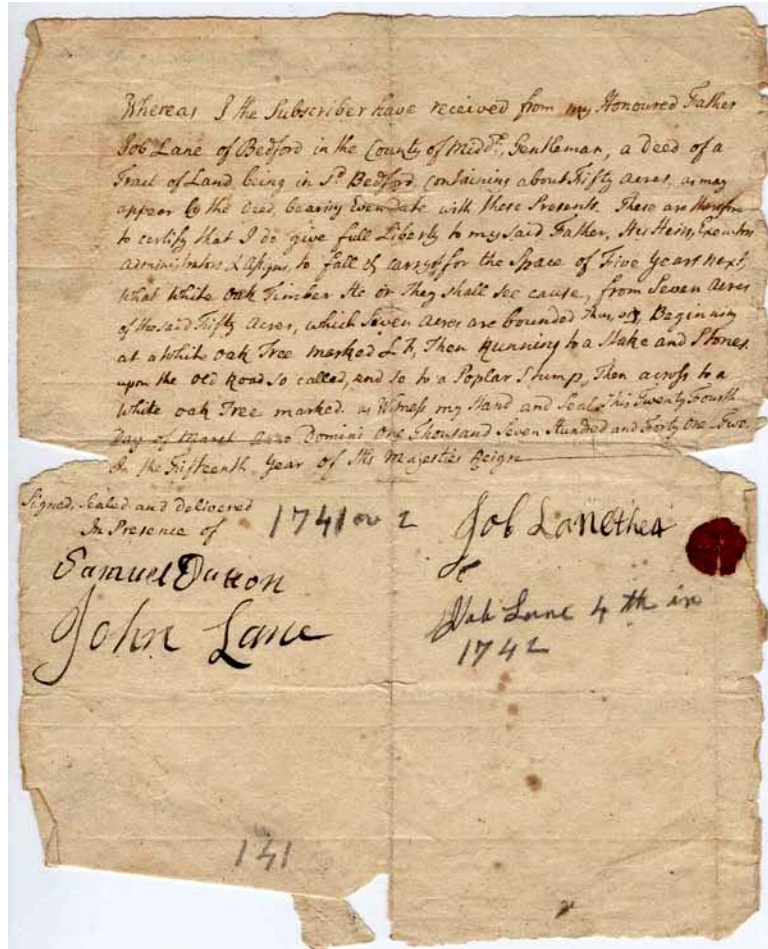 Whereas I the Subscriber have received from my Honoured Father
Job Lane of Bedford in the County of Midd.x Gentleman, a Deed of a
Tract of Land being in S.d Bedford, containing about Fifty Acres, as may
appear by the Deed, bearing Even Date with these Presents. These are therefore
to certify that I do give full Liberty to my said Father, His Heirs, Executors
Administrators & Assigns, to fall & carry off for the Space of Five Years next,
what White Oak Timber He or They shall see cause, from Seven Acres
of the said Fifty Acres, which Seven Acres are bounded Thus, Beginning
at a White Oak Tree marked L, Then Running to a Stake and Stones
upon the Old Road so called, and so to a Poplar Stump, Then across to a
White oak Tree marked. as Witness my Hand and Seal This Twenty Fourth
Day of March Anno Domini One Thousand Seven Hundred and Forty One-Two.
In the Fifteenth Year of His Majesties Reign
Signed, Sealed and Delivered
In Presence of
1741 or 2
Job Lane the 4
Samuel Dutton
John Lane
Job Lane 4th in
1742
141